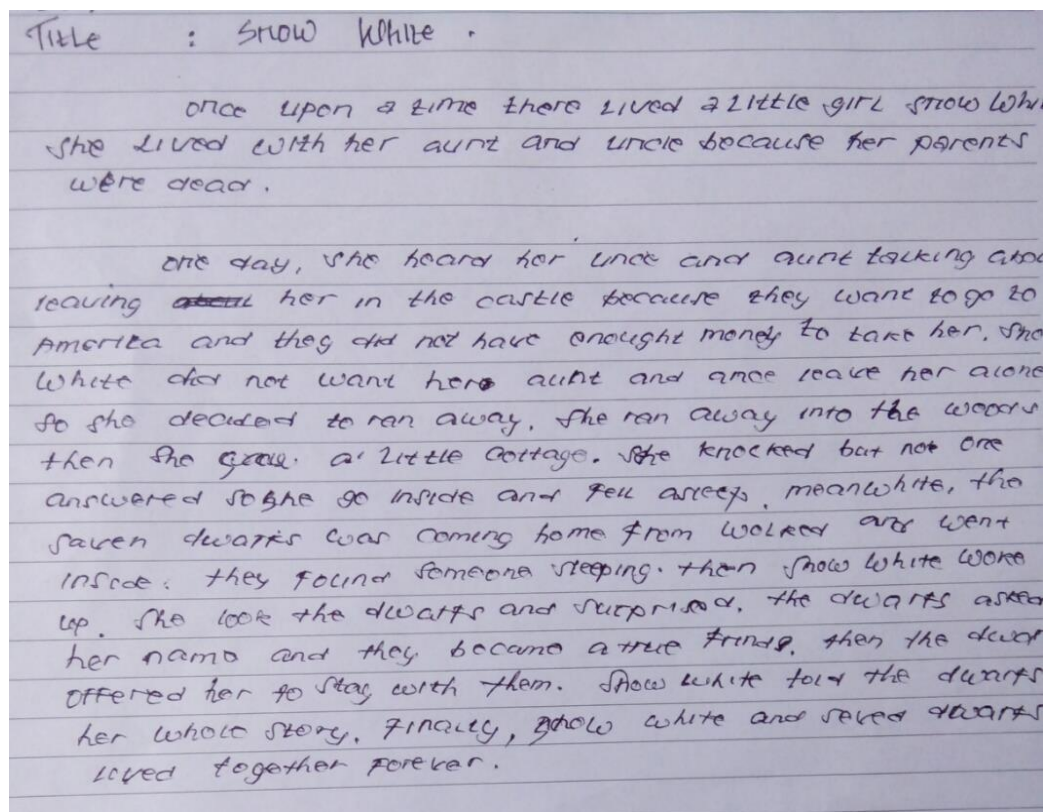 Title : Snow White .
once upon a time there lived a little girl snow Whi
she lived with her aunt and uncle because her parents
were dead.
one day, she heard her unce and aunt talking abou
leaving her in the castle because they want to go to
America and they did not have enought money to take her. Sno
White did not want here aunt and unce leave her alone
So she decided to ran away. She ran away into the woods
then she a little cottage. She knocked but not one
answered so she go inside and fell asleep. meanwhite, the
saven dwarfs was coming home from wolked and went
inside. they found someone sleeping. then snow white woke
up. She look the dwarfs and surprised. the dwarfs asked
her name and they became a true frinds. then the dwar
offered her to stay with them. Snow white told the dwarfs
her whole story. Finally, snow white and seved dwarfs
lived together forever.